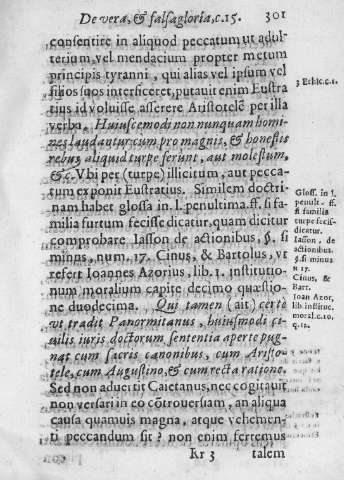 De vera, & falsa gloria, c. 15. 301
consentire in aliquod peccatum ut adul-
terium, vel mendacium propter metum
principis tyranni, qui alias vel ipsum vel
filios suos interficeret, putauit enim Eustra
tius id voluisse asserere Aristotelē per illa
verba. Huiuscemodi non nunquam homi
nes laudantur cum pro magnis, & honestis
rebus aliquid turpe ferunt, aut molestum,
&c. Vbi per (turpe) illicitum, aut pecca-
tum exponit Eustratius. Similem doctri-
nam habet glossa in l. penultima. ff. si fa-
milia furtum fecisse dicatur, quam dicitur
comprobare Iasson de actionibus, §. si
minus, num. 17. Cinus, & Bartolus, vt
refert Ioannes Azorius, lib. 1. institutio-
num moralium capite decimo quæstio-
ne duodecima. Qui tamen (ait) certè
vt tradit Panormitanus, huiusmodi ci-
uilis iuris doctorum sententia aperte pug-
nat cum sacris canonibus, cum Aristo-
tele, cum Augustino, & cum recta ratione.
Sed non aduertit Caietanus, nec cogitauit
non versari in eo cōtrouersiam, an aliqua
causa quamuis magna, atque vehemen-
ti peccandum sit? non enim ferremus
Kr 3 talem
3 Ethic. c. 1.
Gloss. in l.
penult. ff.
si familia
furtum fecis-
dicatur.
Iasson, de
actionibus.
§. si minus
n 17.
Cinus, &
Bart.
Ioan Azor,
lib. institut.
moral. c. 10.
q. 12.